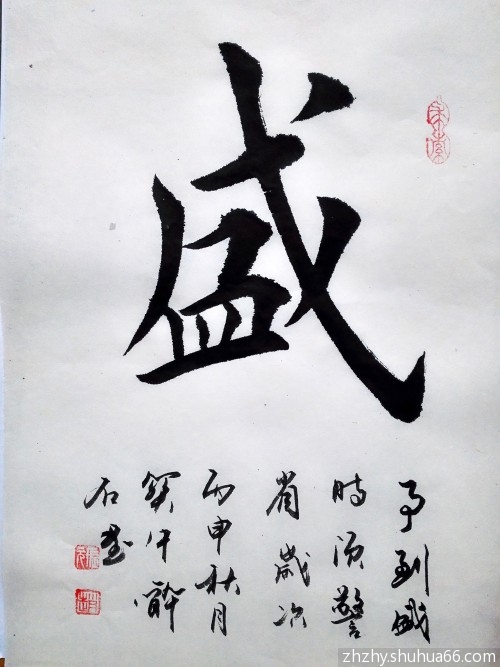 盛
事到盛
時須警
省歲次
丙申秋月
石
zhzhy.shuhua66.com